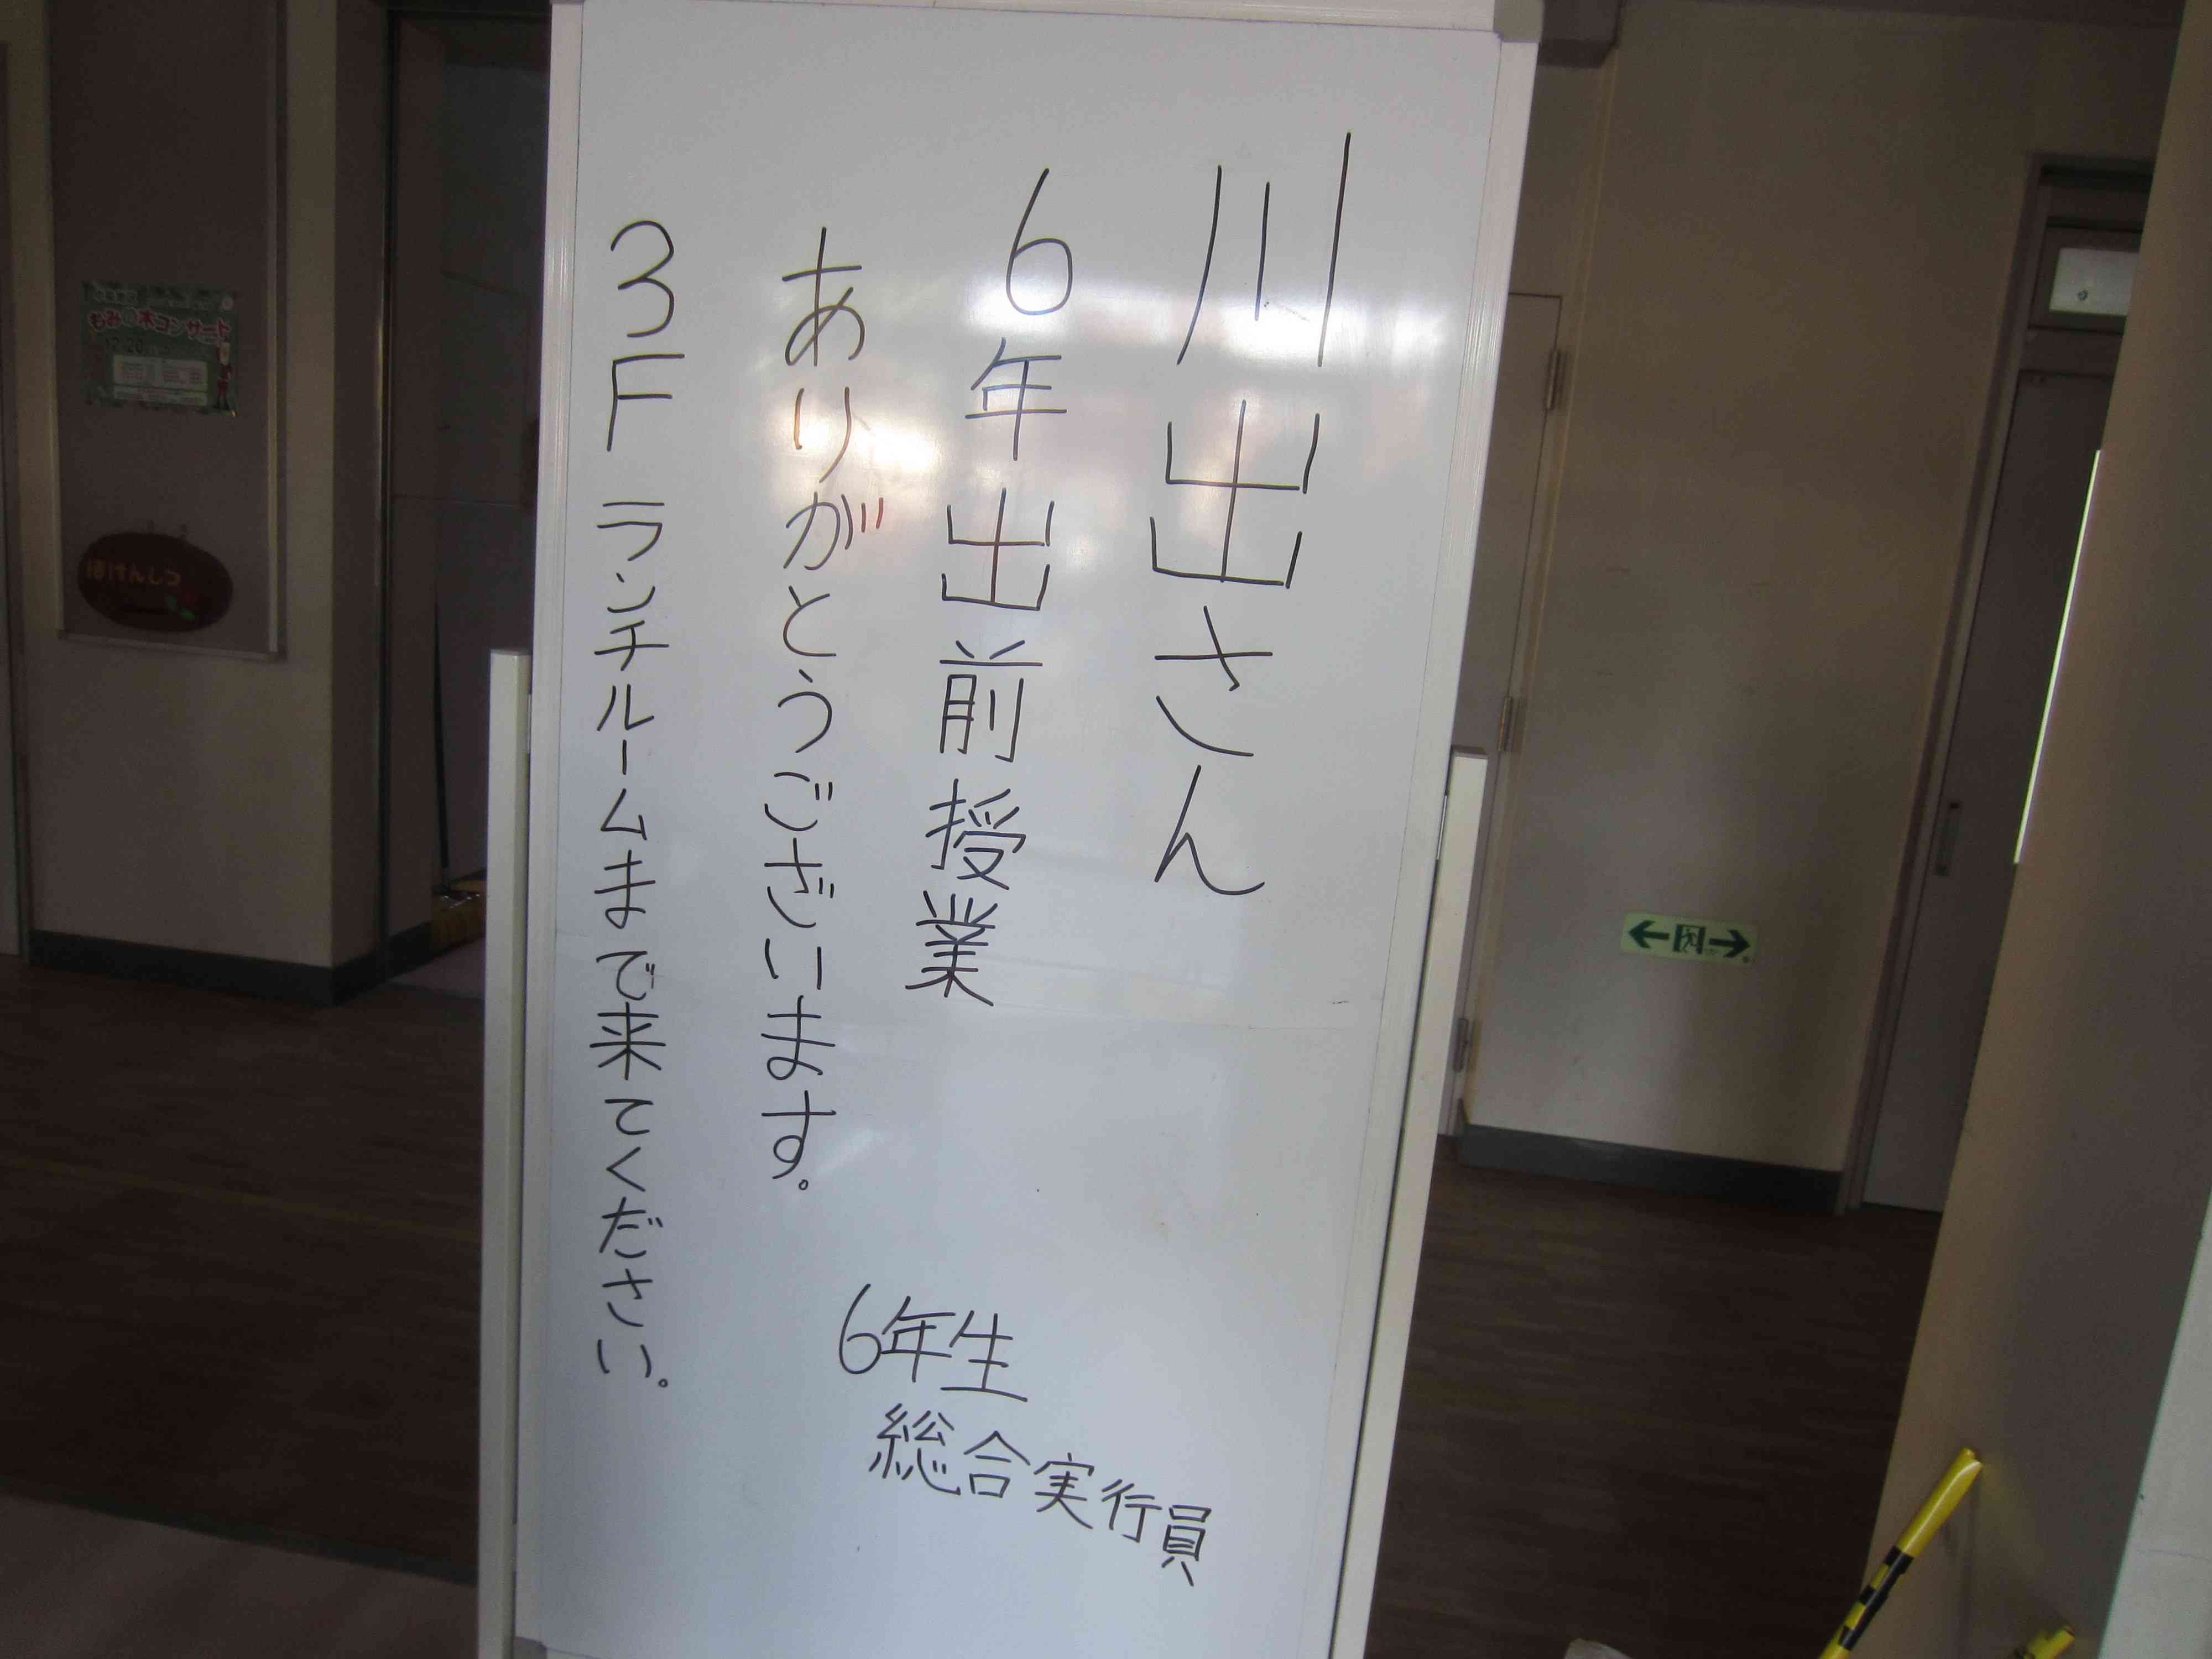 川出さん
6年出前授業
ありがとうございます。
3F ランチルームまで来てください。
6年生
総合実行員
もみの木コンサート
12 20
ほけんしつ